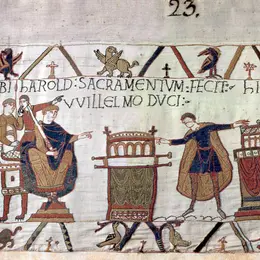 23.
BI hAROLD: SACRAMENTUM: FECIT:- hI
VVILLELMO DUCI:-